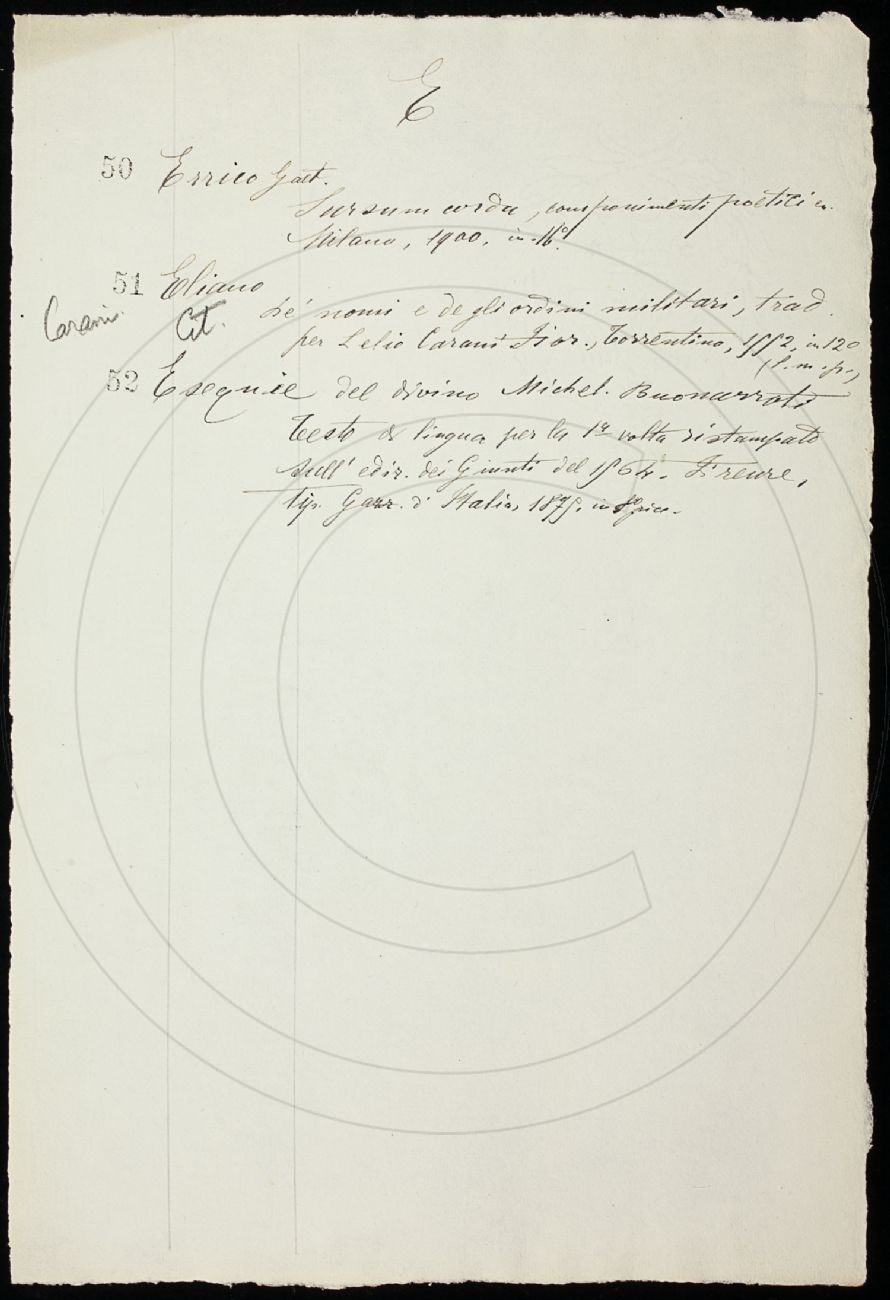 E
50 Errico Gaet.
Sursum corda, componimenti poetici
Milano, 1900, in-16°.
51 Eliano
Carani. Cit. De' nomi e degli ordini militari, trad.
per Lelio Carani Fior., Torrentino, 1552, in 12°
52 Esequie del divino Michel. Buonarroti
Testo di lingua per la 1ª volta ristampato
sull' ediz. dei Giunti del 1564. Firenze,
tip. Gazz. d' Italia, 1875, in 8° picc.